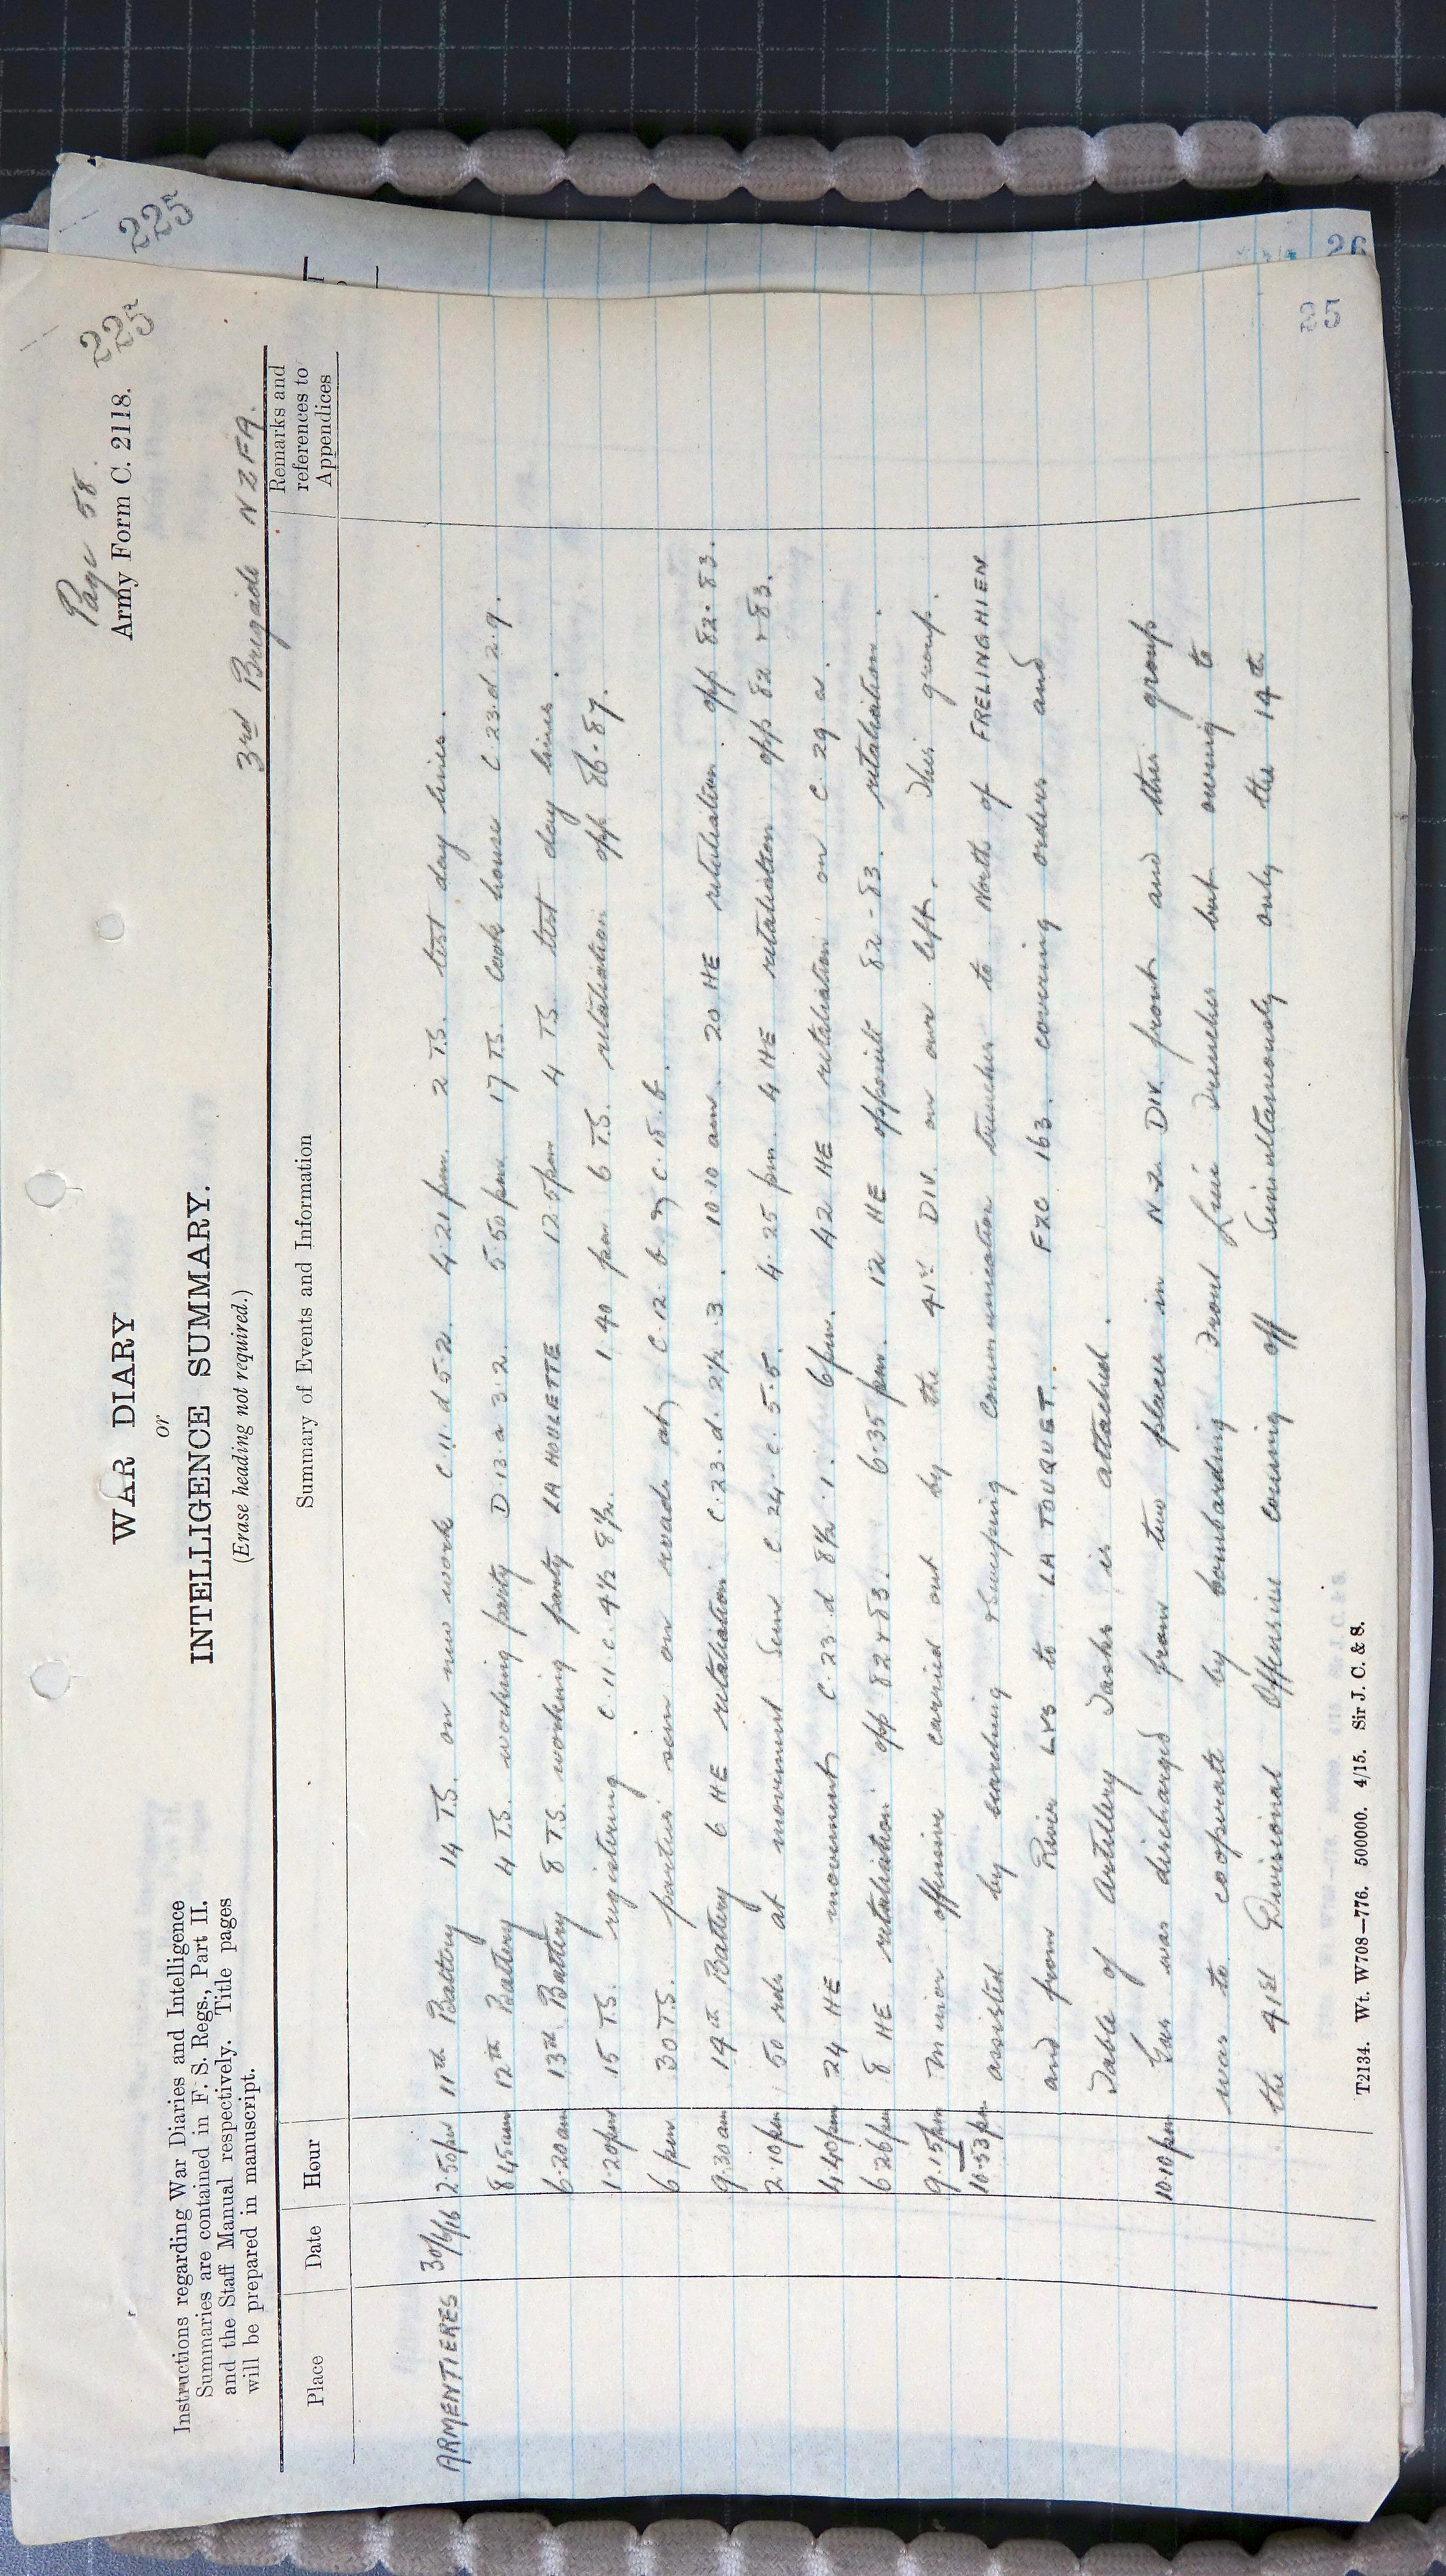 225
Page 58.
225
Army Form C. 2118.
WAR DIARY
or
INTELLIGENCE SUMMARY.
(Erase heading not required.)
Instructions regarding War Diaries and Intelligence
Summaries are contained in F. S. Regs., Part II.
and the Staff Manual respectively. Title pages
will be prepared in manuscript.
3rd Brigade NZFA.
Place Date Hour Summary of Events and Information Remarks and references to Appendices
ARMENTIERES 30/6/16 2.50pm 11th Battery 14 T.S. on new work C.11.d 5.2. 4.21 pm. 2 T.S. test day lines.
8.45am 12th Battery 4 T.S. working party D.13.a 3.2. 5.50 pm 17 T.S. Cook house C.23.d 2.9.
6.20am 13th Battery 8 T.S. working party LA HOULETTE 12.5pm 4 TS test day lines.
1.20pm 15 T.S. registering C.11.c. 4½ 8½. 1.40 pm 6 T.S. retaliation opp 86.87.
6 pm 30 T.S. parties seen on roads at C.12.b & C.18.b.
9.30am 14th Battery 6 HE retaliation C.23.d. 2½.3. 10.10 am. 20 HE retaliation. opp 82.83.
2.10pm 50 rds at movement seen C 24.c. 5.5. 4.25 pm. 4 HE retaliation opp 82 & 83.
4.40pm 24 HE movement C.23.d 8½.1. 6pm. 42 HE retaliation on C.29 a.
6.26pm 8 HE retaliation opp 82 & 83. 6.35 pm. 12 HE opposite 82-83. retaliation.
9.15pm Minor offensive carried out by the 41st DIV. on our left. This group.
10.53pm assisted by searching & sweeping communication trenches to North of FRELINGHIEN
and from River LYS to LA TOUQUET. FZC 163. covering orders and
Table of Artillery Tasks is attached.
10.10pm Gas was discharged from two places in N.Z. DIV. front and this group
was to cooperate by bombarding Front Line Trenches but owing to
the 41st Divisional Offensive coming off Simultaneously only the 14th
25
26
T2134. Wt. W708—776. 500000. 4/15. Sir J. C. & S.